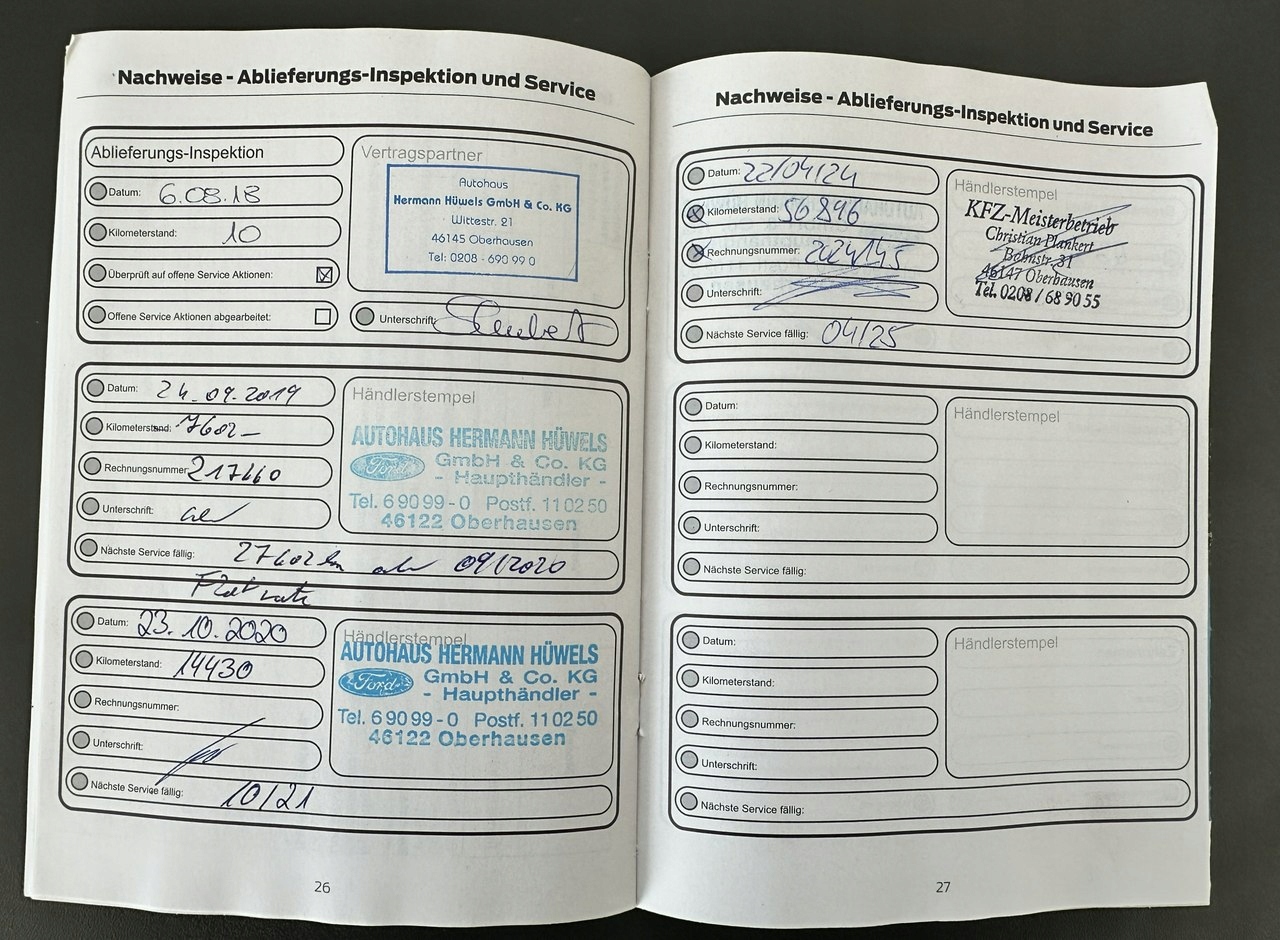 Nachweise - Ablieferungs-Inspektion und Service
Ablieferungs-Inspektion
Datum: 6.08.18
Kilometerstand: 10
Überprüft auf offene Service Aktionen:
Offene Service Aktionen abgearbeitet:
Vertragspartner
Autohaus
Hermann Hüwels GmbH & Co. KG
Wittestr. 21
46145 Oberhausen
Tel: 0208 - 690 99 0
Unterschrift:
Datum: 24.09.2019
Kilometerstand: 7602-
Rechnungsnummer: 217460
Unterschrift:
Händlerstempel
AUTOHAUS HERMANN HÜWELS
Ford GmbH & Co. KG
- Haupthändler -
Tel. 6 90 99 - 0 Postf. 11 02 50
46122 Oberhausen
Nächste Service fällig: 27602 km 09/2020
Flatrate
Datum: 23.10.2020
Kilometerstand: 14430
Rechnungsnummer:
Unterschrift:
Händlerstempel
AUTOHAUS HERMANN HÜWELS
Ford GmbH & Co. KG
- Haupthändler -
Tel. 6 90 99 - 0 Postf. 11 02 50
46122 Oberhausen
Nächste Service fällig: 10/21
26
Nachweise - Ablieferungs-Inspektion und Service
Datum: 22/04/24
Kilometerstand: 56896
Rechnungsnummer: 224145
Unterschrift:
Händlerstempel
KFZ-Meisterbetrieb
Christian Plankert
Bohnstr. 31
46147 Oberhausen
Tel. 0208 / 68 90 55
Nächste Service fällig: 04/25
Datum:
Kilometerstand:
Rechnungsnummer:
Unterschrift:
Händlerstempel
Nächste Service fällig:
Datum:
Kilometerstand:
Rechnungsnummer:
Unterschrift:
Händlerstempel
Nächste Service fällig:
27